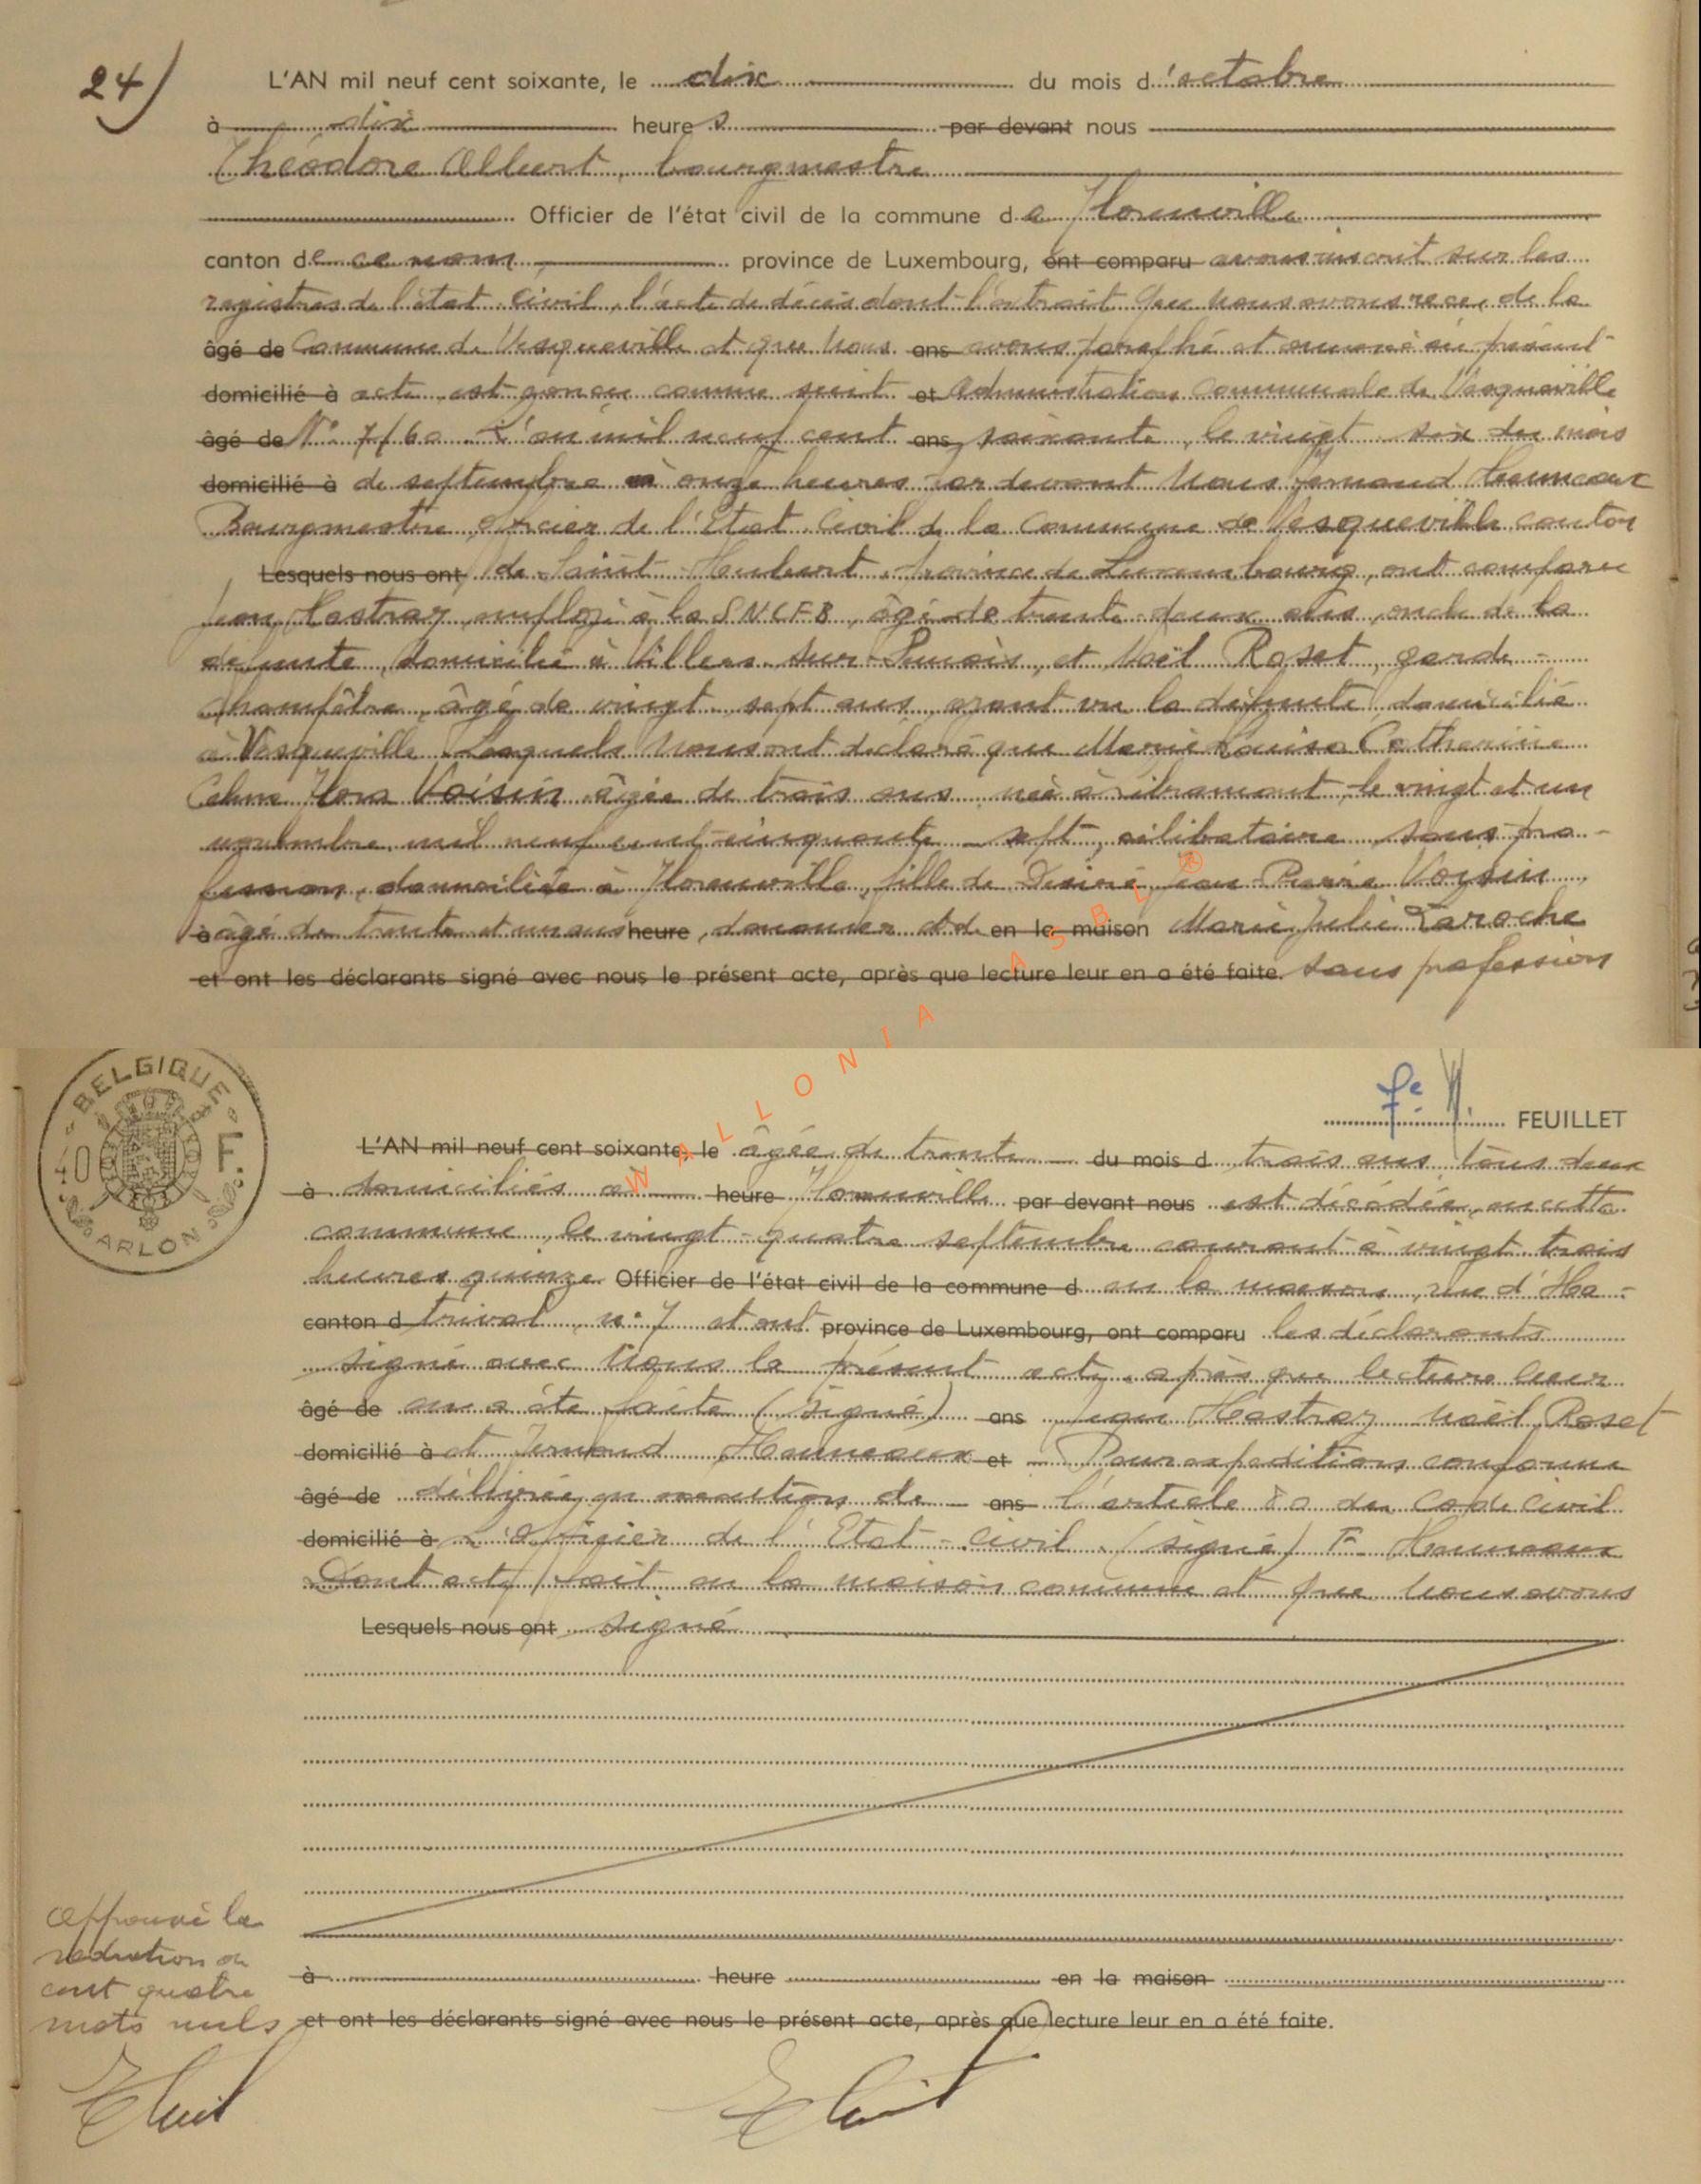 24)
L'AN mil neuf cent soixante, le dix du mois d'octobre
à dix heures par devant nous
Théodore Albert, bourgmestre
Officier de l'état civil de la commune de
canton de ce nom province de Luxembourg, ont comparu avons inscrit sur les
registres de l'état civil, l'acte de décès dont l'extrait que nous avons reçu de la
âgé de Commune de Vesqueville et que Nous ans avons paraphé et annexé au présent
domicilié à acte est conçu comme suit et Administration Communale de Vesqueville
âgé de N° 7/60. L'an mil neuf cent ans soixante, le vingt six du mois
domicilié à de septembre à onze heures par devant Nous Fernand
Bourgmestre Officier de l'Etat Civil de la Commune de Vesqueville canton
Lesquels nous ont de Saint Hubert, province de Luxembourg, ont comparu
Jean Hastray, employé à la SNCFB, âgé de trente deux ans, oncle de la
défunte, domicilié à Villers-sur-Semois, et Noël Roset, garde-
champêtre, âgé de vingt sept ans, ayant vu la défunte, domicilié
à Vesqueville. Lesquels Nous ont déclaré que Marie Louise Catherine
Flora Voisin âgée de trois ans née à Libramont, le vingt et un
novembre mil neuf cent cinquante sept, célibataire, sans pro-
fession, domiciliée à fille de Désiré, Jean Pierre Voisin
à âgé de trente et un ans heure, douanier et de en la maison Marie Julie Laroche
et ont les déclarants signé avec nous le présent acte, après que lecture leur en a été faite. sans profession
WALLONIA ASBL ®
BELGIQUE
40 F.
ARLON
FEUILLET
L'AN mil neuf cent soixante, le âgée de trente du mois d trois ans tous deux
à domiciliés à heure par devant nous est décédée, en cette
commune, le vingt-quatre septembre courant à vingt trois
heures quinze Officier de l'état civil de la commune d en la maison, rue d'Ha-
canton d trival, n° 7 et ont province de Luxembourg, ont comparu les déclarants
signé avec Nous le présent acte, après que lecture leur
âgé de en a été faite (signé) ans Jean Hastray Noël Roset
domicilié à et Fernand Hanneaux et Pour expédition conforme
âgé de délivrée en exécution de ans l'article 80 du Code Civil
domicilié à L'Officier de l'Etat-Civil (signé) F. Hanneaux
Dont acte, fait en la maison commune et que Nous avons
Lesquels nous ont signé
à heure en la maison
et ont les déclarants signé avec nous le présent acte, après que lecture leur en a été faite.
Approuvé la
radiation de
cent quatre
mots nuls